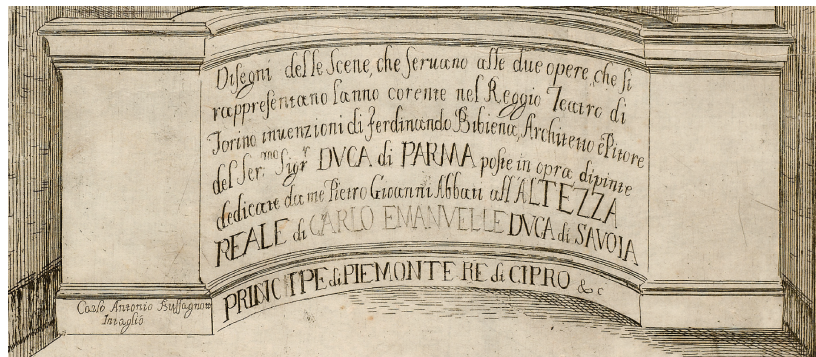 Disegni delle Scene, che seruano alle due opere, che si
rappresentano lanno corente nel Reggio Teatro di
Torino inuenzioni di Ferdinando Bibiena, Architetto e Pitore
del Ser.mo Sigr DVCA di PARMA poste in opra dipinte
dedicate da me Pietro Gioanni Abbati all'ALTEZZA
REALE di CARLO EMANVELLE DVCA di SAVOIA
PRINCIPE di PIEMONTE RE di CIPRO &c
Carlo Antonio Buffagnotti
Intagliò